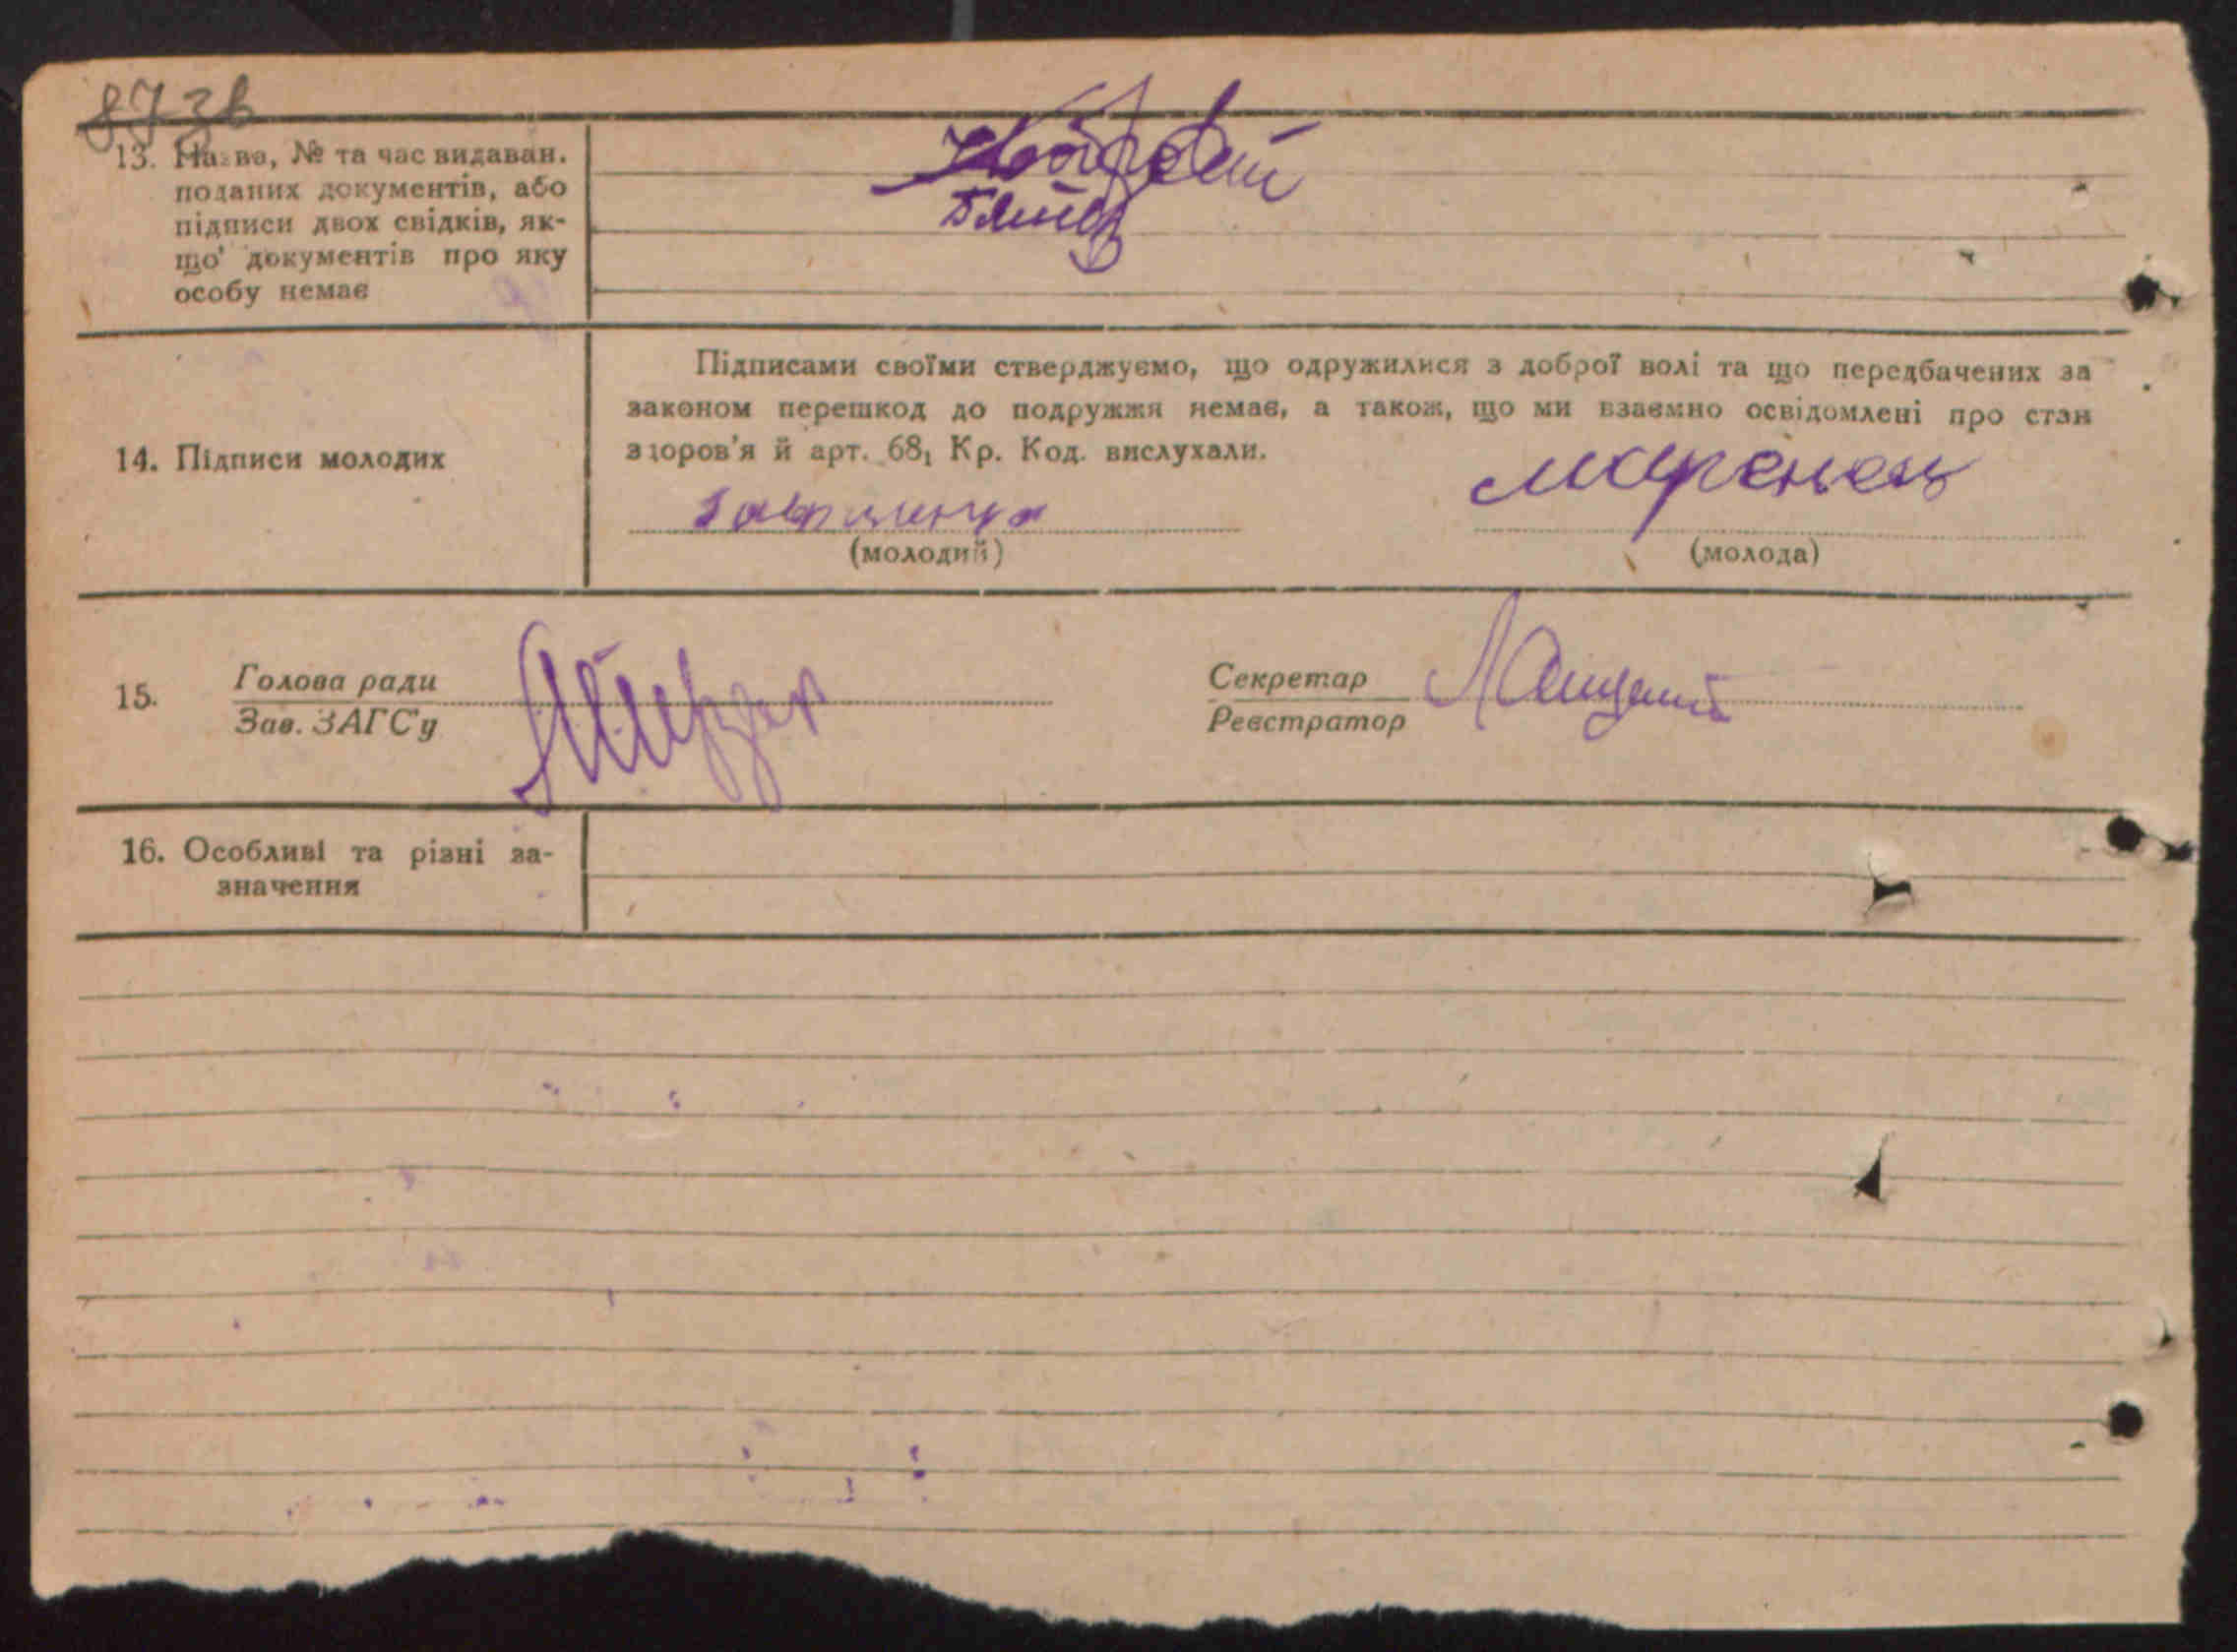 87 зв
13. Назва, № та час видаван.
поданих документів, або
підписи двох свідків, як-
що' документів про яку
особу немає
14. Підписи молодих
Підписами своїми стверджуємо, що одружилися з доброї волі та що передбачених за
законом перешкод до подружжя немає, а також, що ми взаємно освідомлені про стан
здоров'я й арт. 68₁ Кр. Код. вислухали.
(молодий)
(молода)
15. Голова ради
Зав. ЗАГС'у
Секретар
Реєстратор
16. Особливі та різні за-
значення